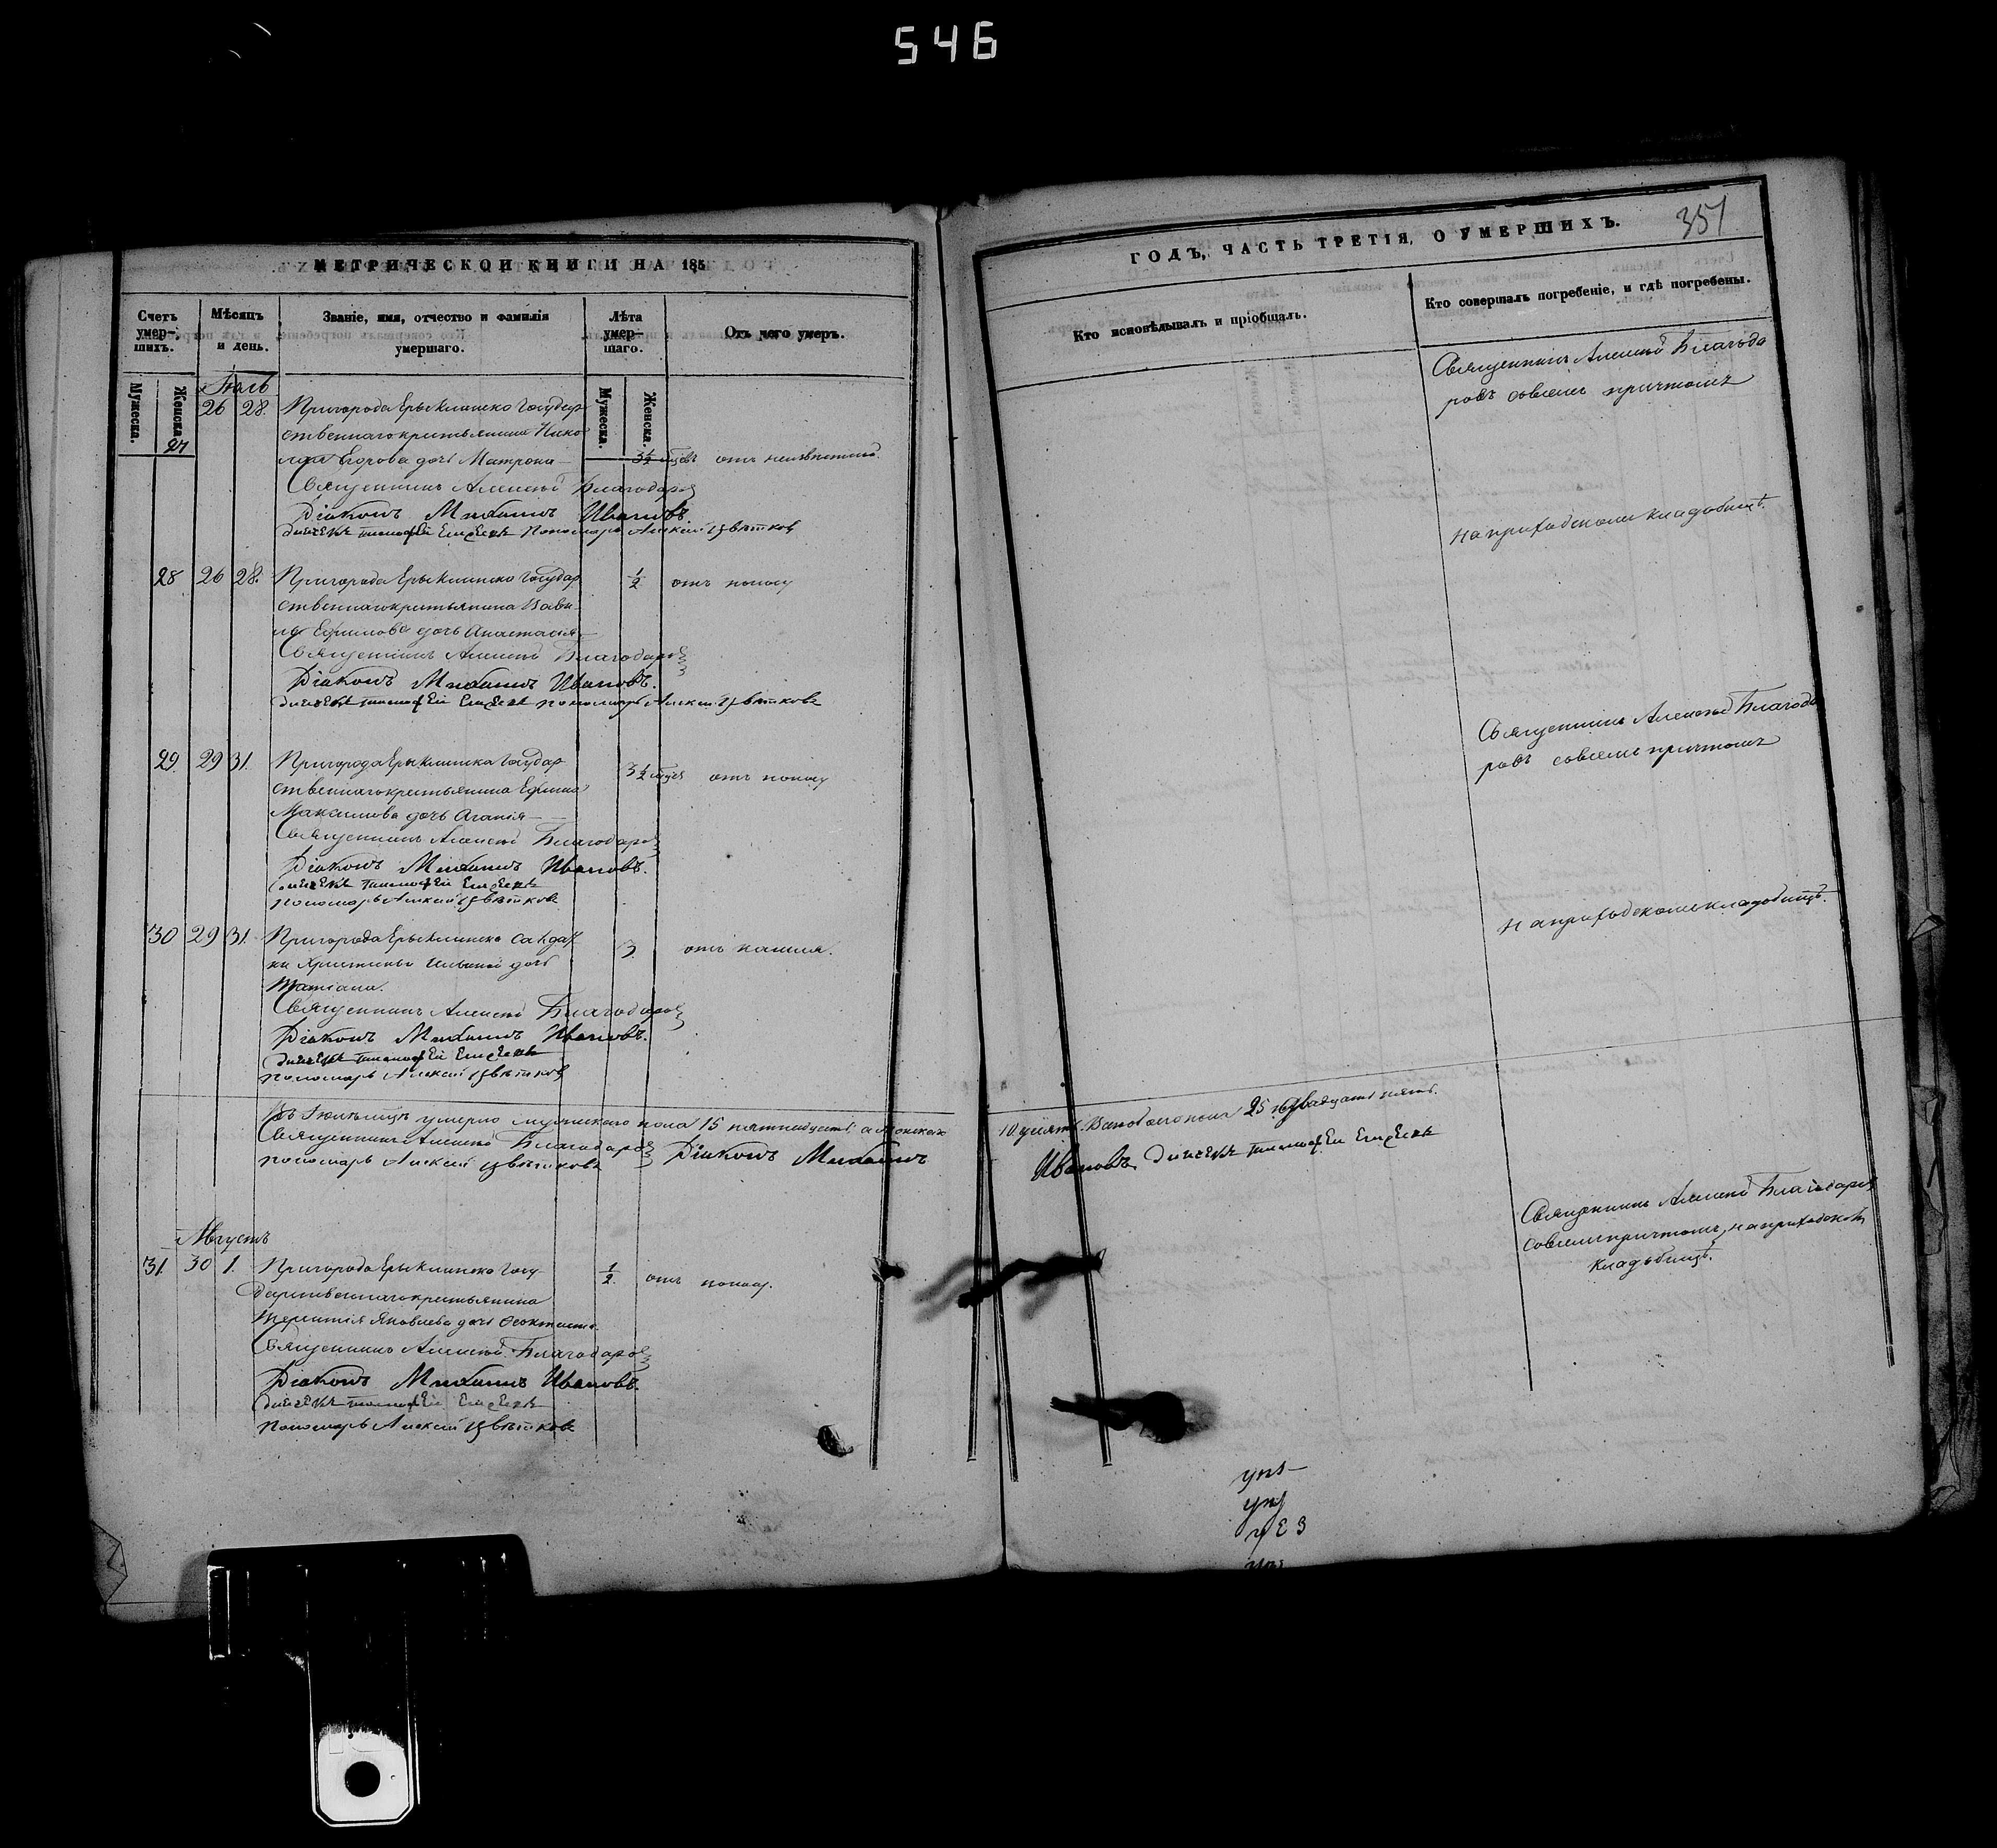 546
МЕТРИЧЕСКОЙ КНИГИ НА 185
Счетъ умер- шихъ.
Мѣсяцъ и день.
Званіе, имя, отчество и фамилія умершаго.
Лѣта умер- шаго.
Отъ чего умеръ.
Мужеска.
Женска.
Мужеска.
Женска.
Іюль
27 26 28. Пригорода Ерыклинска Государ
ственнаго крестьянина Нико
лая Егорова дочь Матрона 3½ отъ неизвѣстной.
Священникъ Алексѣй Благодаровъ
Діаконъ Михаилъ Ивановъ
дьячекъ тимофей Пономарь Алексій Цвѣтковъ
28 26 28. Пригорода Ерыклинска Государ ½ отъ поносу
ственнаго крестьянина Вави
лы Ефимова дочь Анастасія
Священникъ Алексѣй Благодаровъ
Діаконъ Михаилъ Ивановъ.
дьячекъ тимофей пономарь Алексій Цвѣтковъ
29. 29 31. Пригорода Ерыклинска Государ 3½ отъ поносу
ственнаго крестьянина Ефима
Максимова дочь Агапія
Священникъ Алексѣй Благодаровъ
Діаконъ Михаилъ Ивановъ.
дьячекъ тимофей
пономарь Алексій Цвѣтковъ
30 29 31. Пригорода Ерыклинска Солдат 3. отъ кашля.
ки Христиньи Ильиной дочь
Татіана.
Священникъ Алексѣй Благодаровъ
Діаконъ Михаилъ Ивановъ.
дьячекъ тимофей
пономарь Алексій Цвѣтковъ
Въ Іюлѣ умерло мужескаго пола 15 пятнадцать, а женскаго
Священникъ Алексѣй Благодаровъ Діаконъ Михаилъ
пономарь Алексій Цвѣтковъ
Августъ
31. 30 1. Пригорода Ерыклинска Госу ½. отъ поносу.
дарственнаго крестьянина
Терентія Яковлева дочь Ѳеоктиста.
Священникъ Алексѣй Благодаровъ
Діаконъ Михаилъ Ивановъ.
дьячекъ тимофей
пономарь Алексій Цвѣтковъ
ГОДЪ, ЧАСТЬ ТРЕТІЯ, О УМЕРШИХЪ.
351
Кто исповѣдывалъ и пріобщалъ.
Кто совершалъ погребеніе, и гдѣ погребены.
Священникъ Алексѣй Благода
ровъ совсемъ причтомъ
на приходскомъ кладбищѣ.
Священникъ Алексѣй Благода
ровъ совсемъ причтомъ
на приходскомъ кладбищѣ.
10 десять. Вообоего пола 25 двадцать пять.
Ивановъ дьячекъ тимофей
Священникъ Алексѣй Благодаровъ
совсемъ причтомъ, на приходскомъ
кладбищѣ.